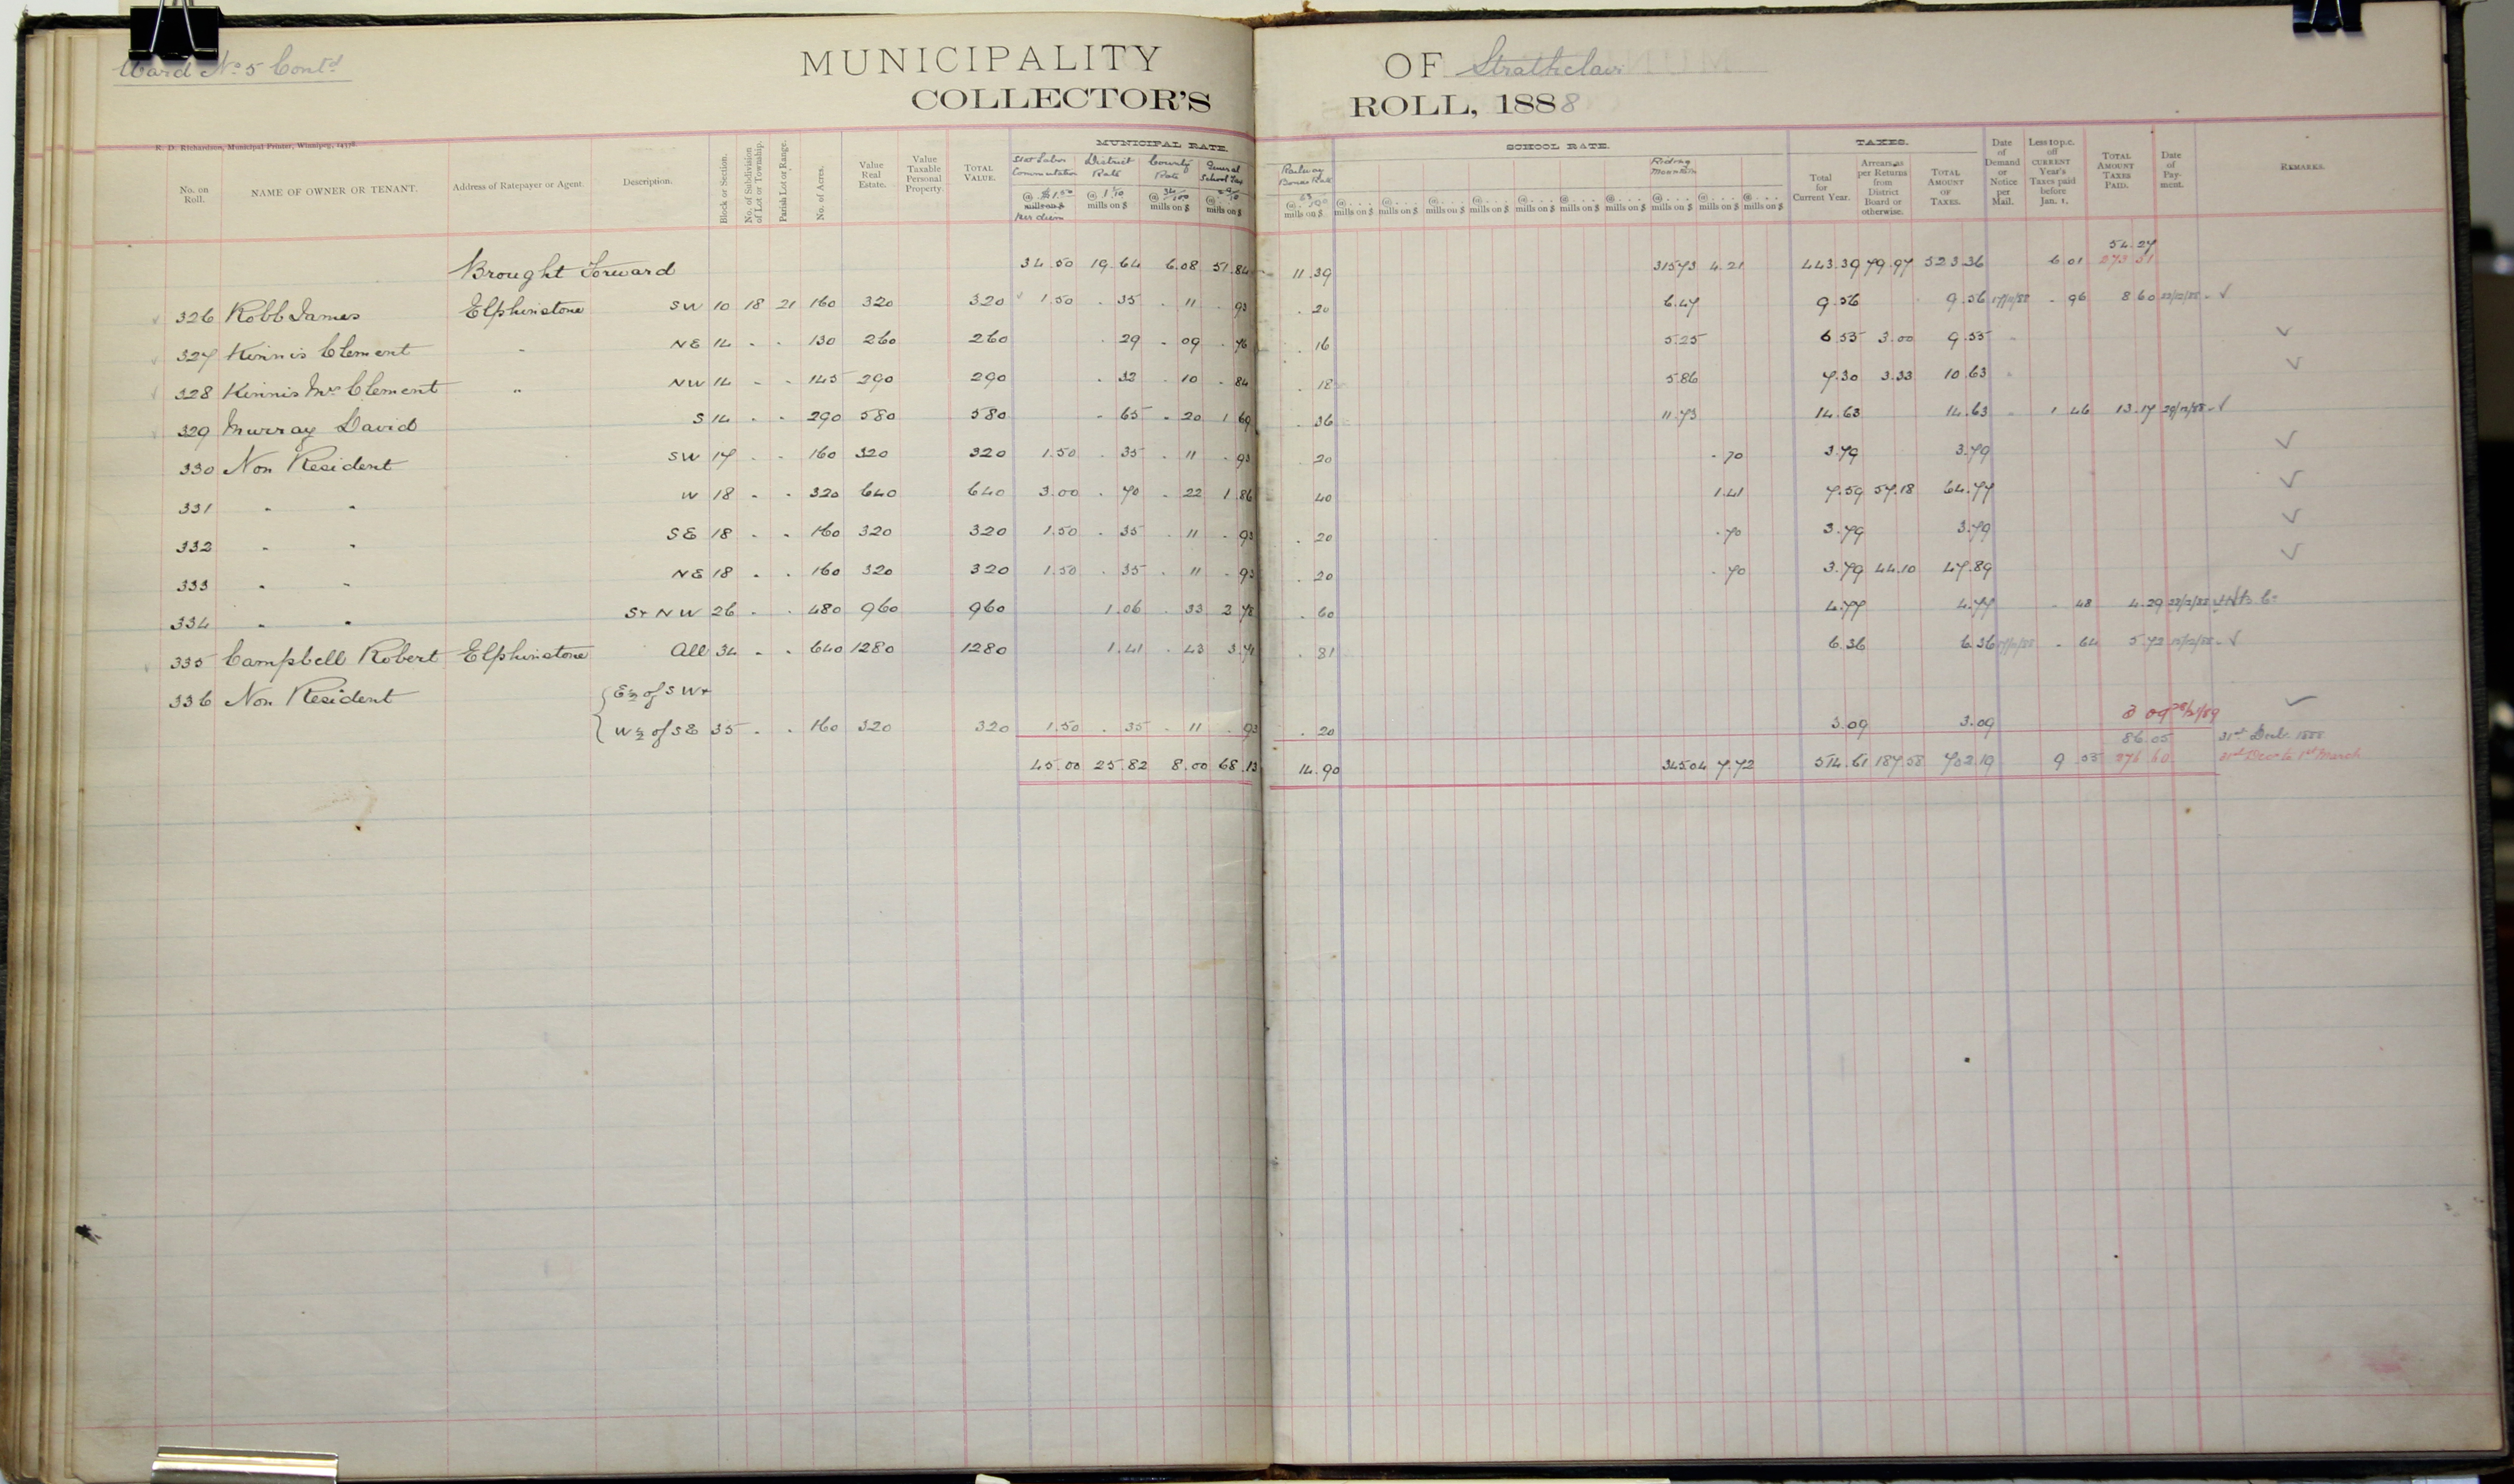 Ward No 5 Contd
MUNICIPALITY OF Strathclair
COLLECTOR'S ROLL, 1888
R. D. Richardson, Municipal Printer, Winnipeg,
MUNICIPAL RATE. SCHOOL RATE. TAXES.
No. on Roll. NAME OF OWNER OR TENANT. Address of Ratepayer or Agent. Description. Block or Section. No. of Subdivision of Lot or Township. Parish Lot or Range. No. of Acres. Value Real Estate. Value Taxable Personal Property. TOTAL VALUE. Stat Labor Commutation @ $1.50 mills on $ per diem District Rate @ 1 1/10 mills on $ County Rate @ 34/100 mills on $ General School Tax @ mills on $ Railway Bonus Rate @ mills on $ @ mills on $ @ mills on $ @ mills on $ @ mills on $ @ mills on $ @ mills on $ @ mills on $ Riding Mountain @ mills on $ @ mills on $ @ mills on $ Total for Current Year. Arrears as per Returns from District Board or otherwise. TOTAL AMOUNT OF TAXES. Date of Demand or Notice per Mail. Less 10 p.c. off CURRENT Year's Taxes paid before Jan. 1. TOTAL AMOUNT TAXES PAID. Date of Payment. REMARKS.
54.27
Brought Forward 34.50 19.64 6.08 51.84 11.39 315.73 4.21 443.39 79.97 523.36 6.01 273 51
326 Robb James Elphinstone SW 10 18 21 160 320 320 1.50 . 35 . 11 . 93 . 20 6.47 9.56 9.56 17/11/88 . 96 8 60 22/12/88 - ✓
327 Kinnis Clement " NE 14 " " 130 260 260 . 29 . 09 . 76 . 16 5.25 6.55 3.00 9.55 " ✓
328 Kinnis Mrs Clement " NW 14 " " 145 290 290 . 32 . 10 . 84 . 18 5.86 7.30 3.33 10.63 " ✓
329 Murray David S 14 " " 290 580 580 . 65 . 20 1 69 . 36 11.73 14.63 14.63 " 1 46 13.17 29/12/88 - ✓
330 Non Resident SW 17 " " 160 320 320 1.50 . 35 . 11 . 93 . 20 . 70 3.79 3.79 ✓
331 " " W 18 " " 320 640 640 3.00 . 70 . 22 1 86 40 1.41 7.59 57.18 64.77 ✓
332 " " SE 18 " " 160 320 320 1.50 . 35 . 11 . 93 . 20 . 70 3.79 3.79 ✓
333 " " NE 18 " " 160 320 320 1.50 . 35 . 11 . 93 . 20 . 70 3.79 44.10 47.89 ✓
334 " " S+NW 26 " " 480 960 960 1.06 . 33 2 78 . 60 4.77 4.77 . 48 4.29
335 Campbell Robert Elphinstone All 34 " " 640 1280 1280 1.41 . 43 3.71 . 81 6.36 6.36 17/11/88 . 64 5.72 15/12/88 - ✓
336 Non Resident { E½ of SW+
{ W½ of SE 35 " " 160 320 320 1.50 . 35 . 11 . 93 . 20 3.09 3.09 3 09 ✓
86.05 31st Decbr. 1888
45.00 25.82 8.00 68.13 14.90 345.04 7.72 514.61 187.58 702.19 9 55 276 60 31st Decr to 1st March